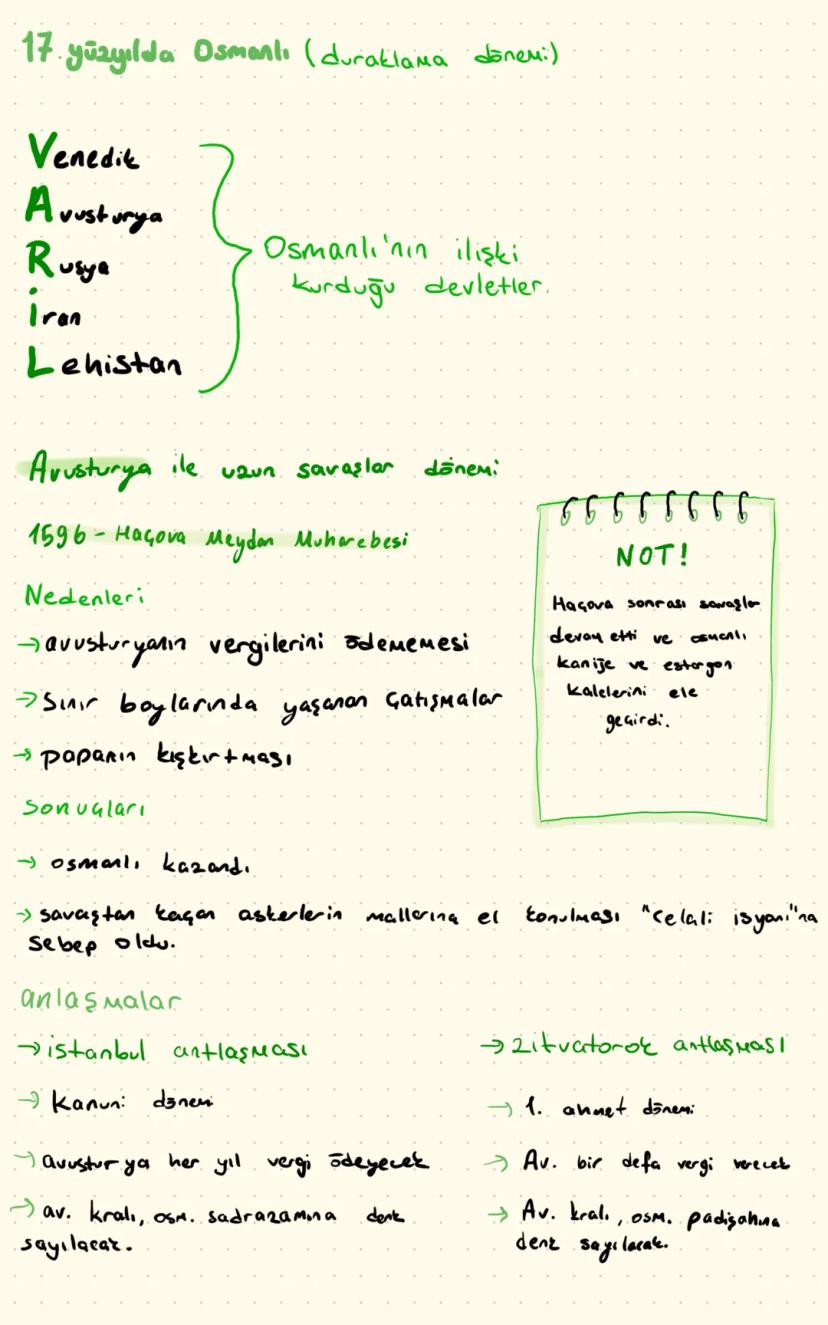 17 yüzyılda Osmanlı (duraklama dönemi)
Venedik
Avusturya
Rusya
İran
Lehistan
Osmanlı'nın ilişki
kurduğu devletler.
Avusturya ile uzun savaşlar dönemi
1596 - Haçova Meydan Muharebesi
Nedenleri
→ avusturyanın vergilerini ödememesi
→ Sınır boylarında yaşanan çatışmalar
→ papanın kışkırtması
Sonuçları
→ osmanlı kazandı.
→ savaştan kaçan askerlerin mallarına el konulması "Celali isyanı"na
sebep oldu.
NOT!
Haçova sonrası savaşlar
devam etti ve osmanlı
kanije ve estergon
kalelerini ele
geçirdi.
anlaşmalar
→ istanbul antlaşması
→ Kanuni dönemi
→ avusturya her yıl vergi ödeyecek
→ av. kralı, osm. sadrazamına denk
sayılacak.
→ Zitvatorok antlaşması
→ 1. ahmet dönemi
→ Av. bir defa vergi verecek
→ Av. kralı, osm. padişahına
denk sayılacak.